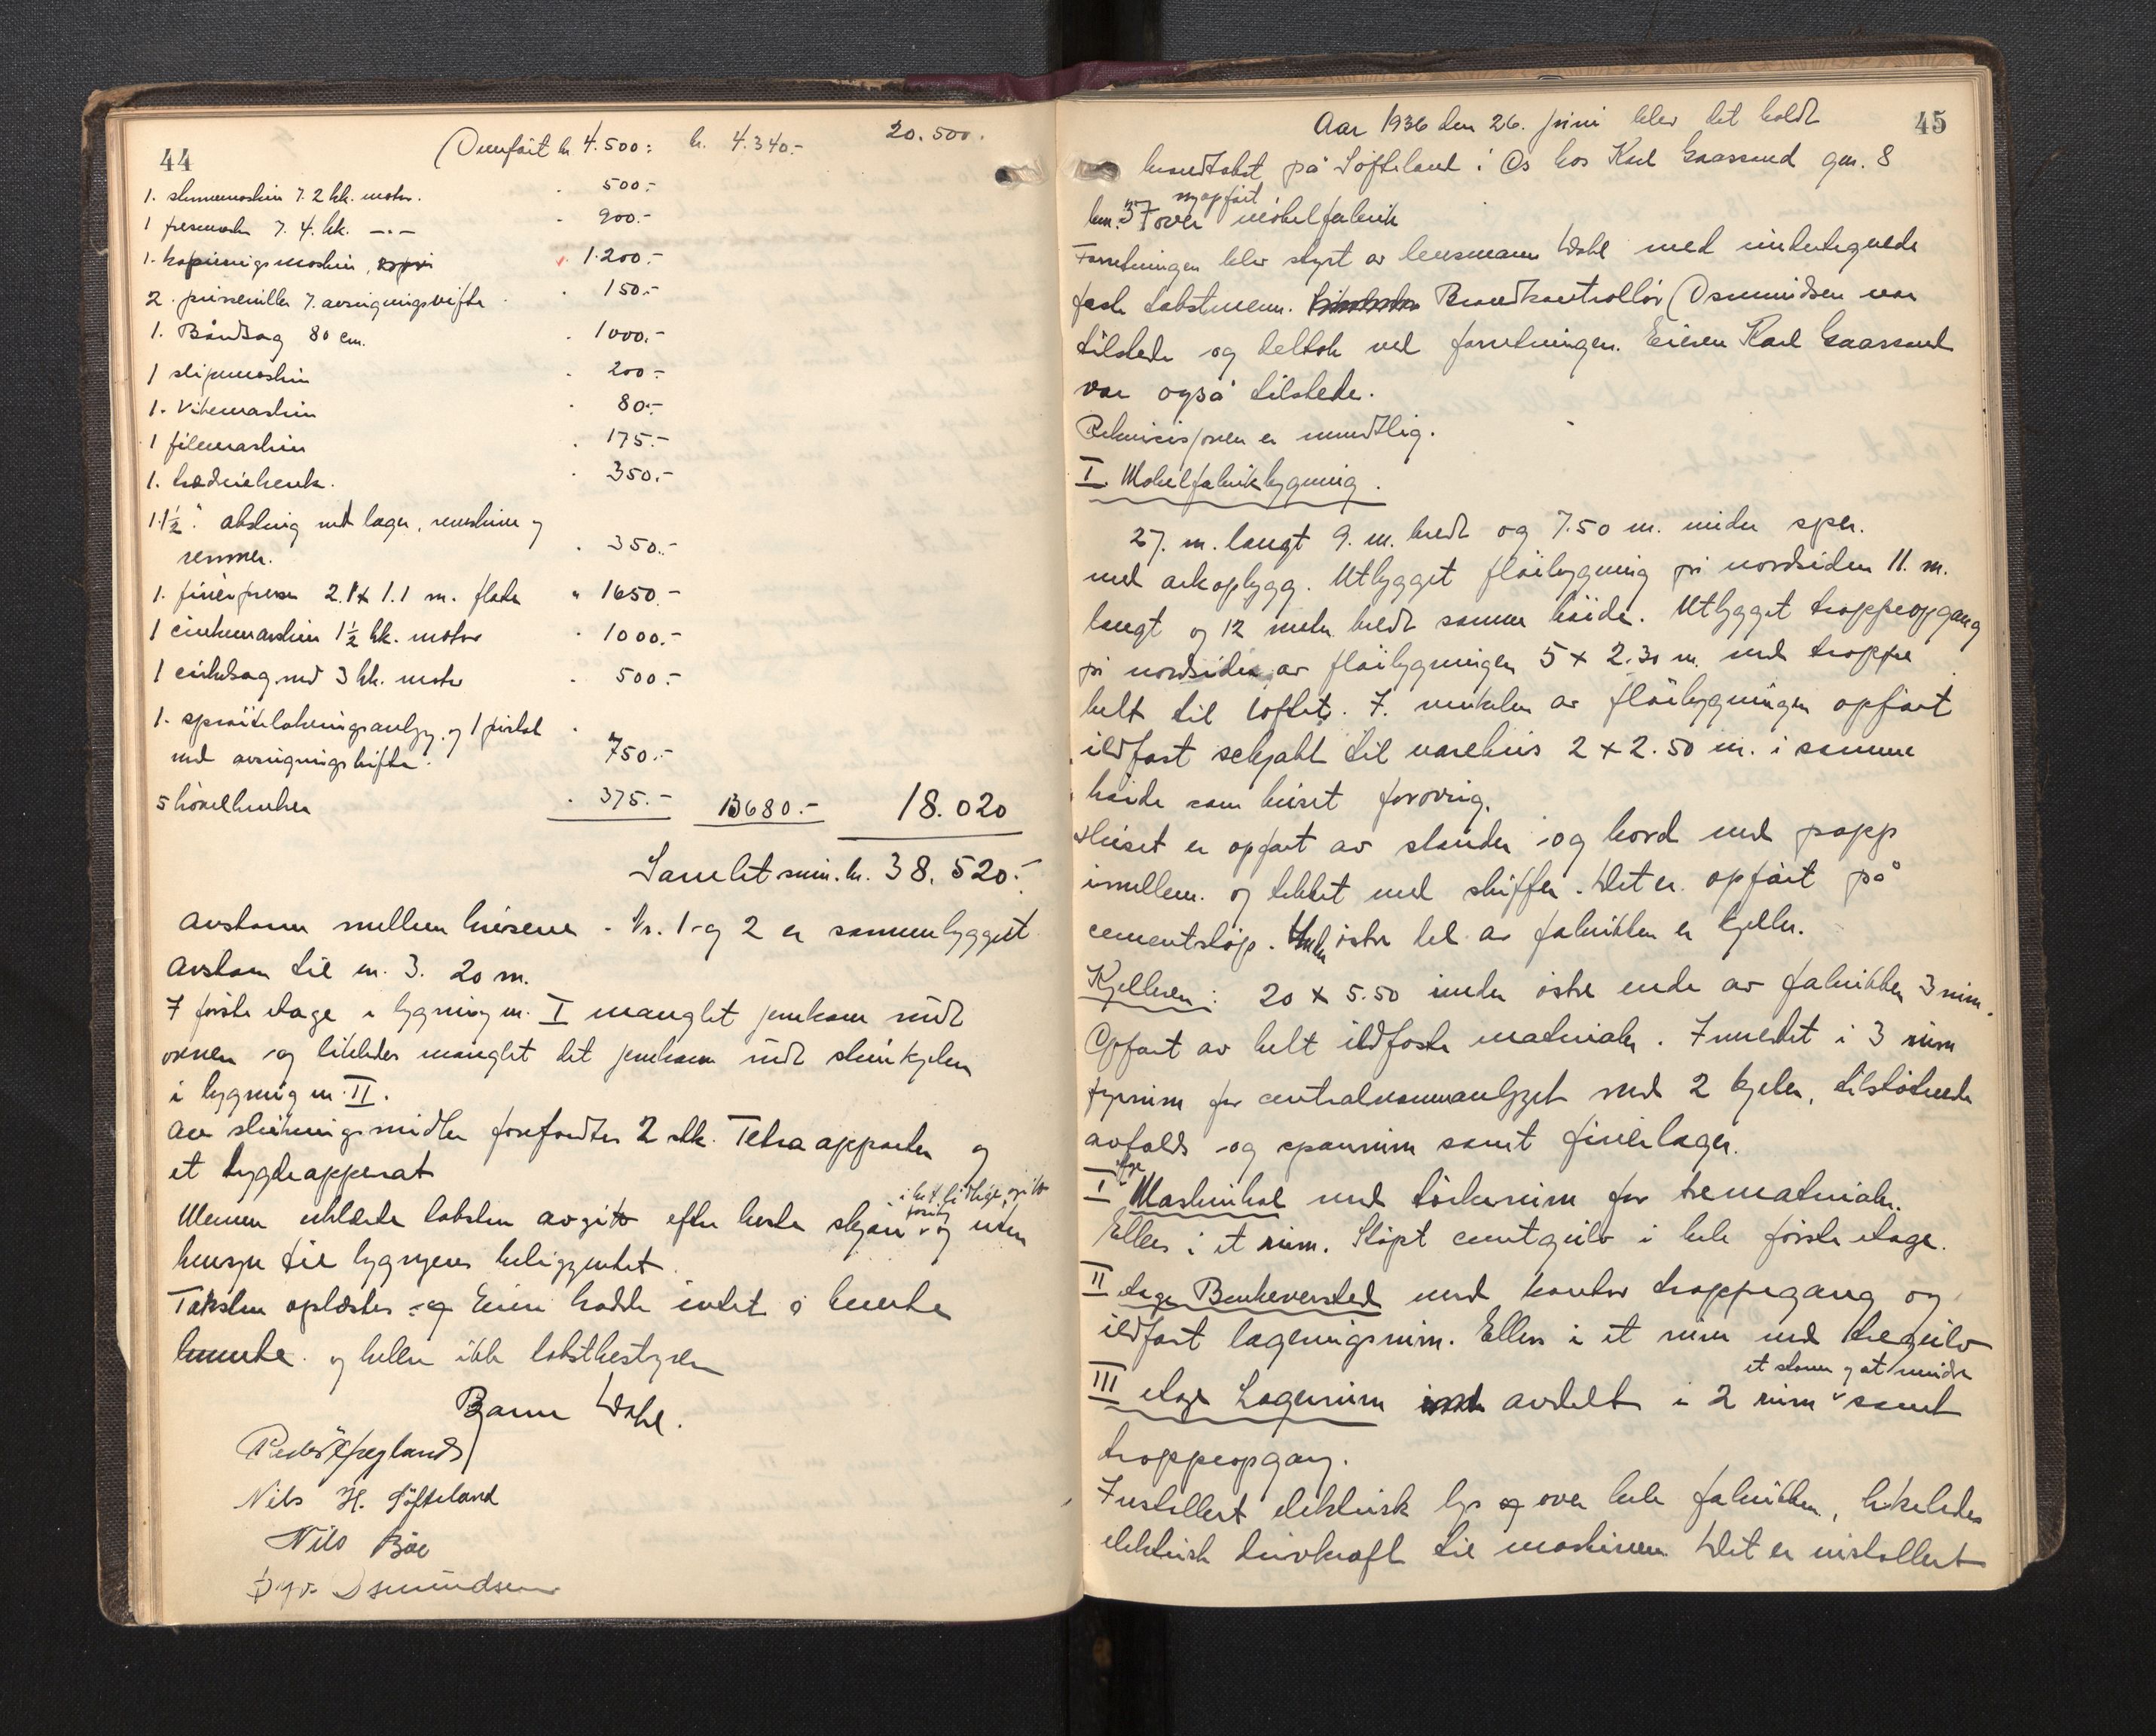 44
Overført kr 4.500: kr. 4.340.- 20.500.
1. slummaskin 7. 2 hk. motor. 500.-
1 fresmaskin 7. 4. hk. -"- 900.-
1. kopieringsmaskin, 1.200.-
2. pusseruller 7. avsugningsvifte 150.-
1. Båndsag 80 cm. 1000.-
1 slipemaskin 200.-
1. Vikemaskin 80.-
1 filemaskin 175.-
1. trædreiebenk. 350.-
1. 1½" aksling med lager, remskiver og
remmer. 350.-
1. finérpresse 2.1 x 1.1 m. flate " 1650.-
1 sinkemaskin 1½ hk. motor 1000.-
1 cirkelsag med 3 hk. motor 500.-
1. sprøitelakeringsanlegg. og 1 pistol
med avsugningsvifte. 750.-
5 høvelbenker 375.- 13680.- 18.020
Samlet sum. kr. 38.520.-
Avstann mellem husene. Nr. 1 og 2 er sammenbygget.
Avstann til nr. 3. 20 m.
I første etage i bygning nr. I manglet jernkarm rundt
ovnen og likeledes manglet det jernkarm rundt limkjelen
i bygning nr. II.
Av slukningsmidler forefandtes 2 stk. Tetra apparater og
et bygdeapparat
Mennen erklærte taksten avgit efter beste skjøn og uten
hensyn til bygningenes beliggenhet.
Taksten oplæstes og Eieren hadde intet å bemerke
bemerke. og heller ikke takstbestyreren
Bjarne Dahl.
Peder Øpeglands
Nils H. Søfteland
Nils Bøe
Osmundsen
45
Aar 1936 den 26. juni blev det holdt
brandtakst på Søfteland i Os hos Karl Gaassand gnr. 8
nyopført
bnr. 37 over møbelfabrik
Forretningen blev styrt av lensmann Dahl med undertegnede
faste takstmenn. Brandkontrollør Osmundsen var
tilstede og deltok ved forretningen. Eieren Karl Gaassand
var også tilstede.
Rekvisisjonen er mundtlig.
I Møbelfabrikbygning.
27. m. langt 9. m. bredt og 7.50 m. under sper.
med arkoplygg. Utbygget fløibygning på nordsiden 11. m.
langt og 12 meter bredt samme høide. Utbygget trappeopgang
på nordsiden av fløibygningen 5 x 2.30 m. med trappe
helt til loftet. I. vinkelen av fløibygningen opført
ildfast sekjakt til varehus 2 x 2.50 m. i samme
høide som huset forøvrig.
Huset er opført av stender og bord med papp
imellem. og tekket med skiffer. Det er opført på
cementstøp. Under østre del av fabrikken er kjeller.
Kjelleren: 20 x 5.50 under østre ende av fabrikken 3 rum.
Opført av helt ildfaste materialer. Innredet i 3 rum
fyrrum for centralvarmeanlegget med 2 kjeler, tilstøtende
avfalds og sponrum samt finerlager.
I etage Maskinhal med tørkerum for trematerialer.
Ellers i et rum. Støpt cementgulv i hele første etage.
II etage Benkeversted med kontor trappegang og
ildfast lagerningsrum. Ellers i et rum med tregulv
et større og et mindre
III etage Lagerrum avdelt i 2 rum samt
trappeopgang.
Installert elektrisk lys og over hele fabrikken, likeledes
elektrisk drivkraft til maskinene. Det er installert